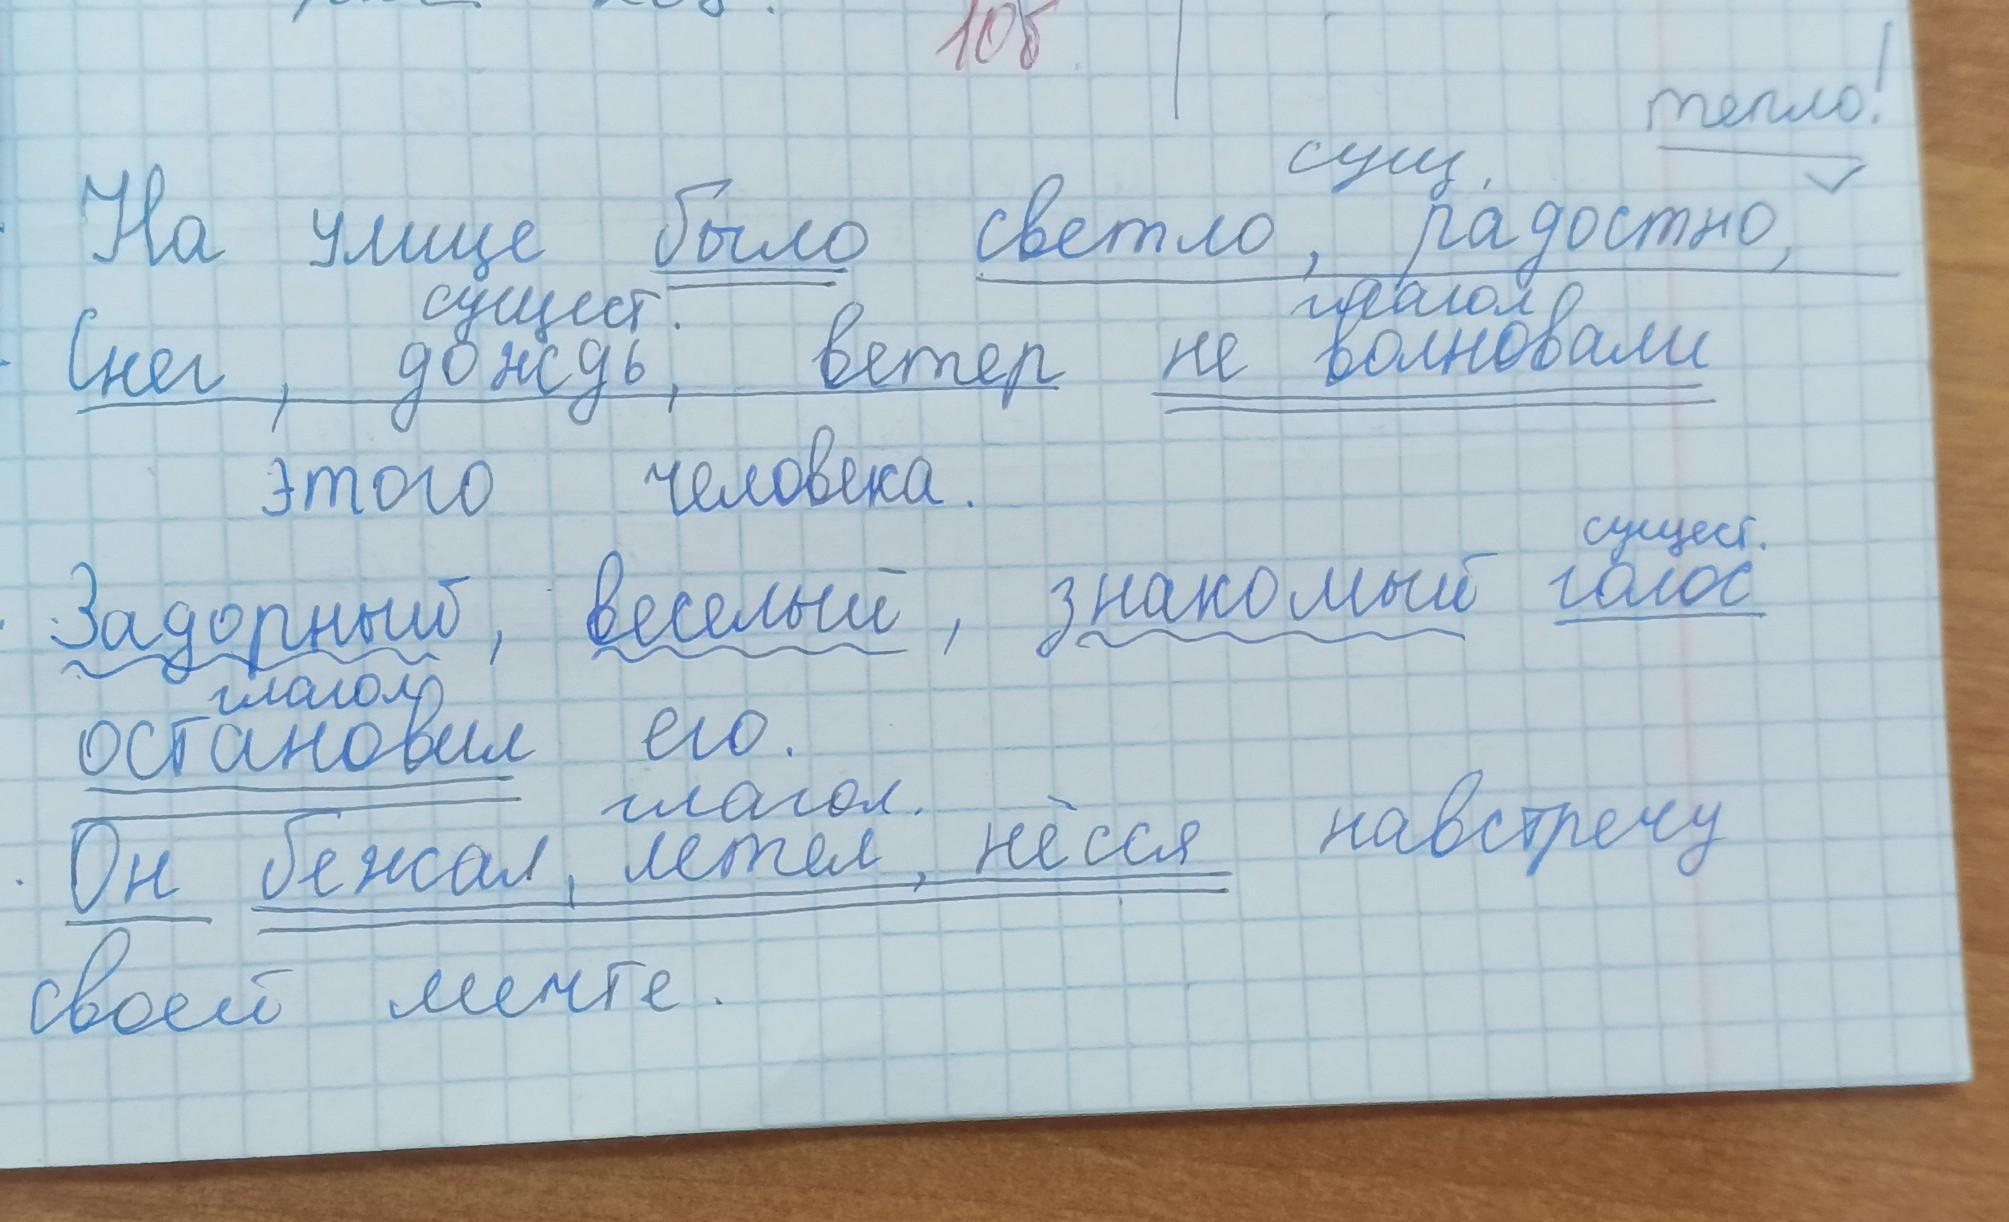 10б
тепло!
сущ.
На улице было светло, радостно,
сущест. глагол
Снег, дождь, ветер не волновали
этого человека.
сущест.
Задорный, веселый, знакомый голос
глагол
остановил его.
глагол.
Он бежал, летел, нёсся навстречу
своей мечте.